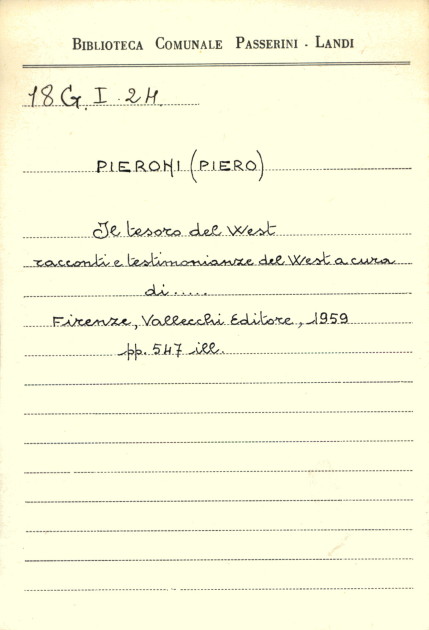 BIBLIOTECA COMUNALE PASSERINI - LANDI
18 G. I. 24.
PIERONI (PIERO)
Il tesoro del West
racconti e testimonianze del West a cura
di.....
Firenze, Vallecchi Editore, 1959
pp. 547 ill.